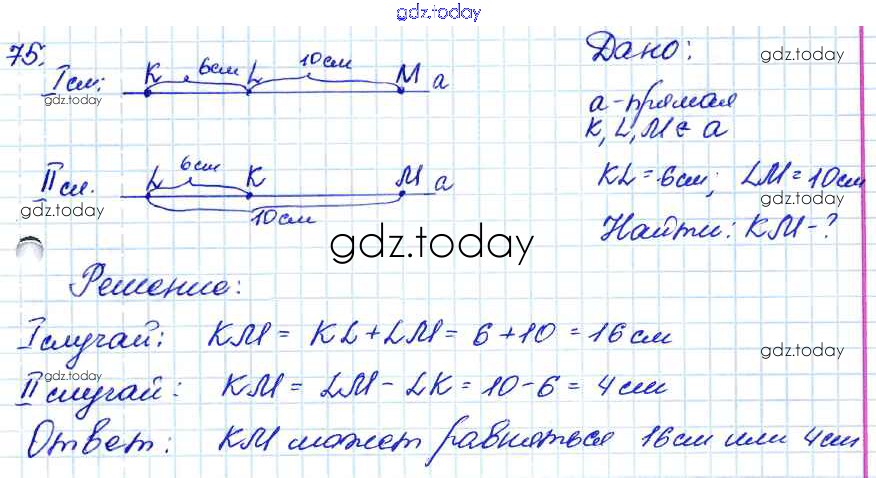 gdz.today
75.
I сл: K 6см L 10см M a
gdz.today
Дано:
gdz.today
a - прямая
K, L, M ∈ a
II сл. L 6см K M a
10см
gdz.today
KL = 6см; LM = 10см
gdz.today
Найти: KM - ?
gdz.today
Решение:
I случай: KM = KL + LM = 6 + 10 = 16 см
gdz.today
gdz.today
II случай: KM = LM - LK = 10 - 6 = 4 см
Ответ: KM может равняться 16 см или 4 см